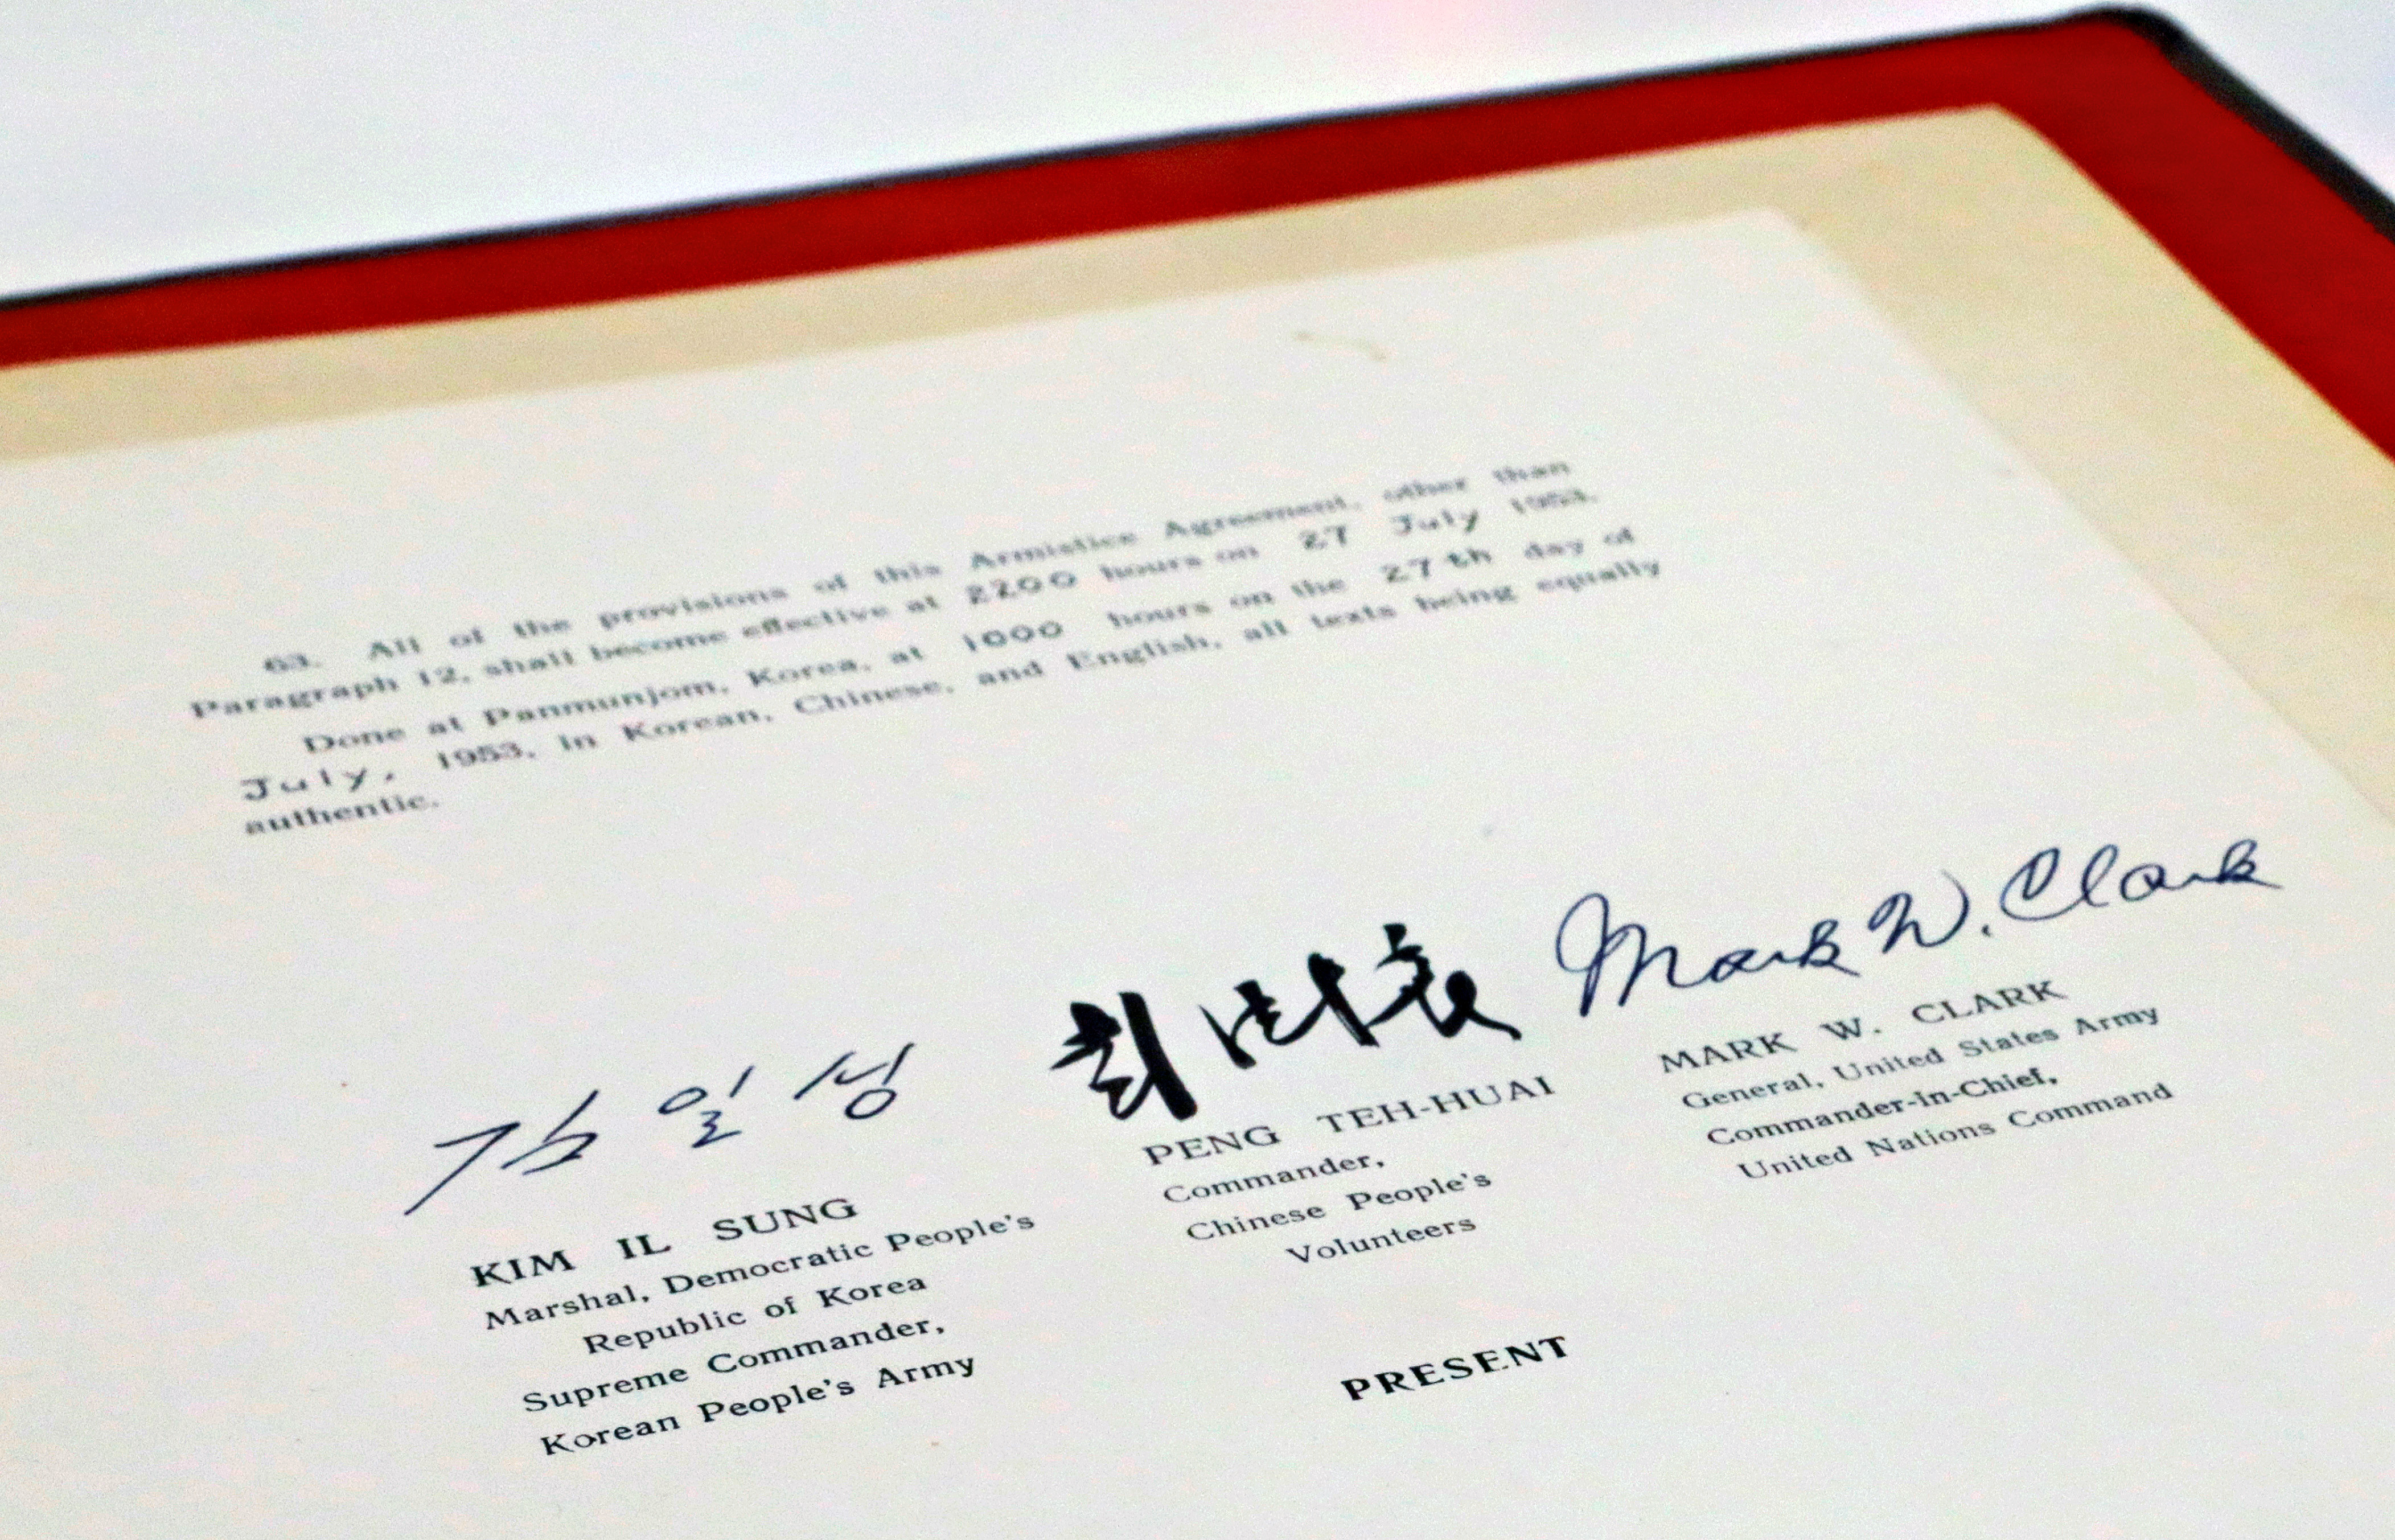 63. All of the provisions of this Armistice Agreement, other than
Paragraph 12, shall become effective at 2200 hours on 27 July 1953.
Done at Panmunjom, Korea, at 1000 hours on the 27th day of
July, 1953, in Korean, Chinese, and English, all texts being equally
authentic.
김일성
彭德懷
Mark W. Clark
KIM IL SUNG
Marshal, Democratic People's
Republic of Korea
Supreme Commander,
Korean People's Army
PENG TEH-HUAI
Commander,
Chinese People's
Volunteers
MARK W. CLARK
General, United States Army
Commander-in-Chief,
United Nations Command
PRESENT